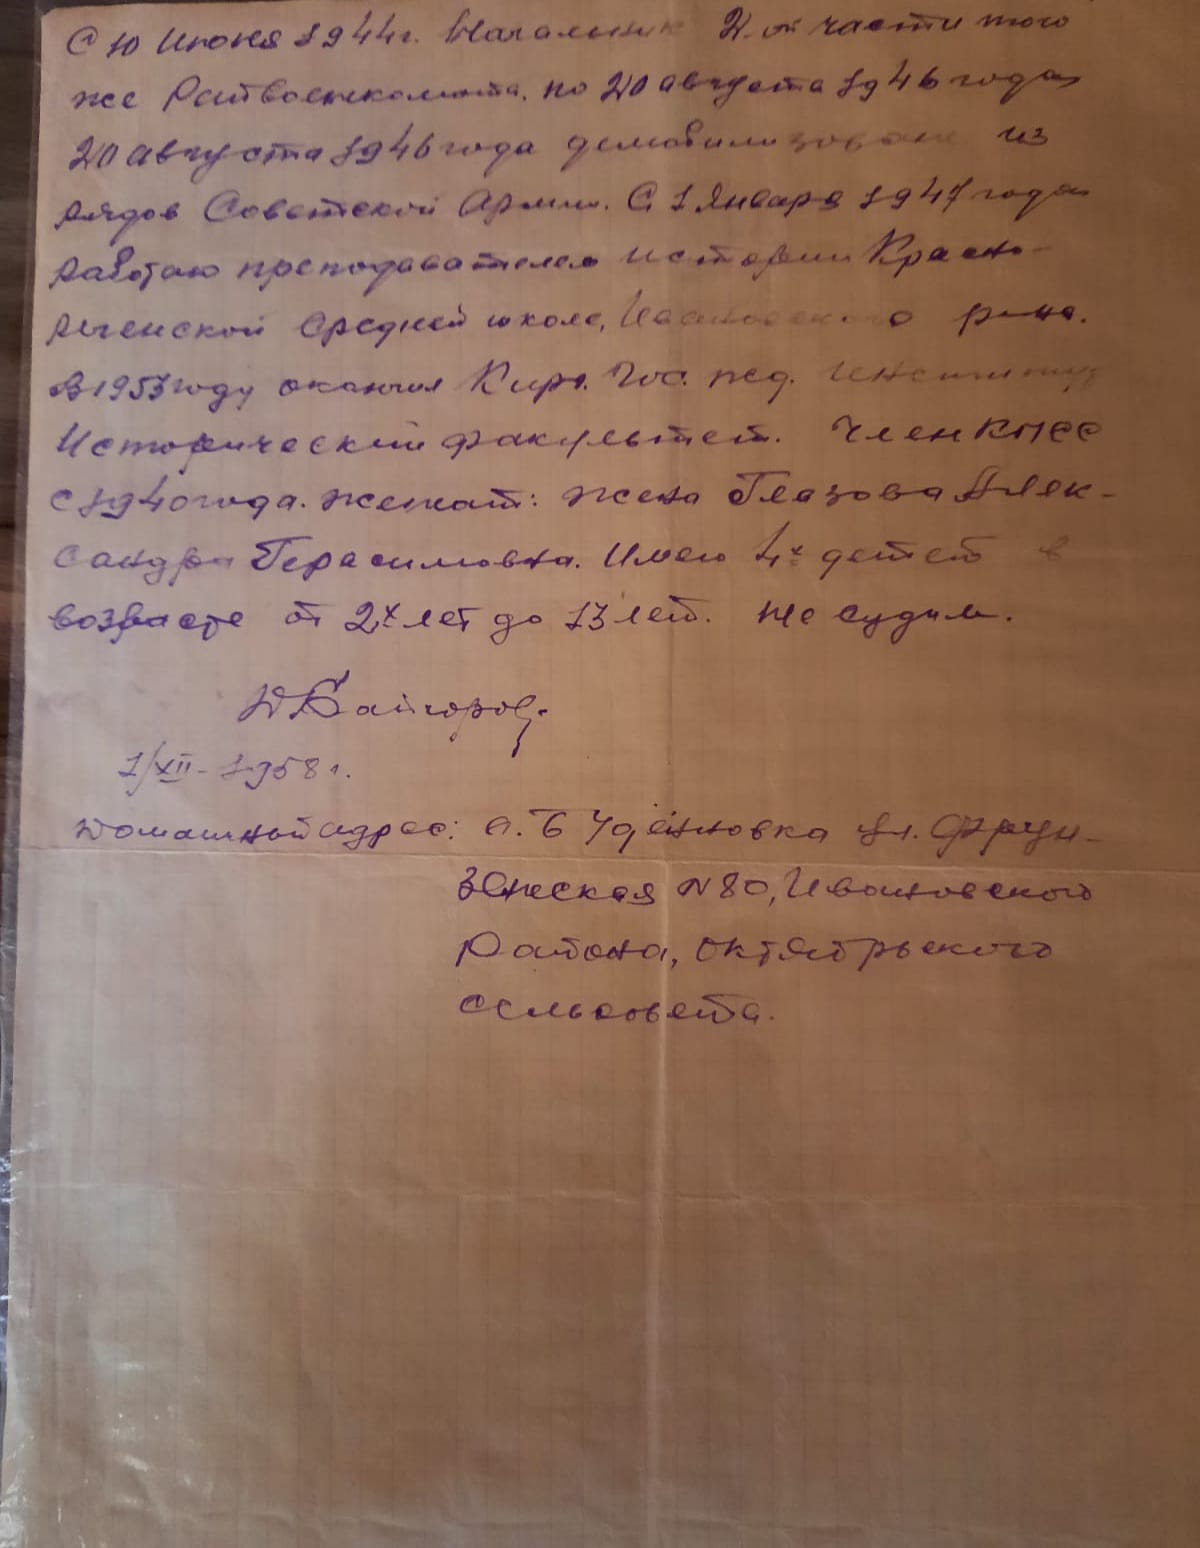 С 10 Июня 1944г. Начальник 2-ой части того
же Райвоенкомата. по 20 августа 1946 года
20 августа 1946 года демобилизован из
рядов Советской Армии. С 1 Января 1947 года
работаю преподавателем истории Красно-
реченской средней школе, Ивановского р-на.
В 1953 году окончил Кирг. Гос. пед. Институт
Исторический факультет. Член КПСС
с 1940 года. Женат: жена Глазова Алек-
сандра Герасимовна. Имею 4х детей в
возрасте от 2х лет до 13 лет. Не судим.
Байгоров
1/XII-1958 г.
Домашний адрес: с. Будённовка ул. Фрун-
зенская №80, Ивановского
Района, Октябрьского
сельсовета.